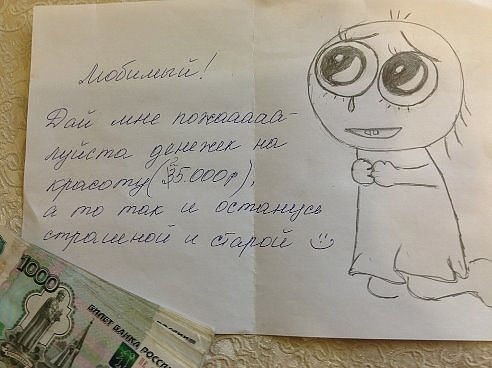 Любимый!
Дай мне пожааааа-
луйста денежек на
красоту(35.000р),
а то так и останусь
страшной и старой
1000
БИЛЕТ БАНКА РОССИИ